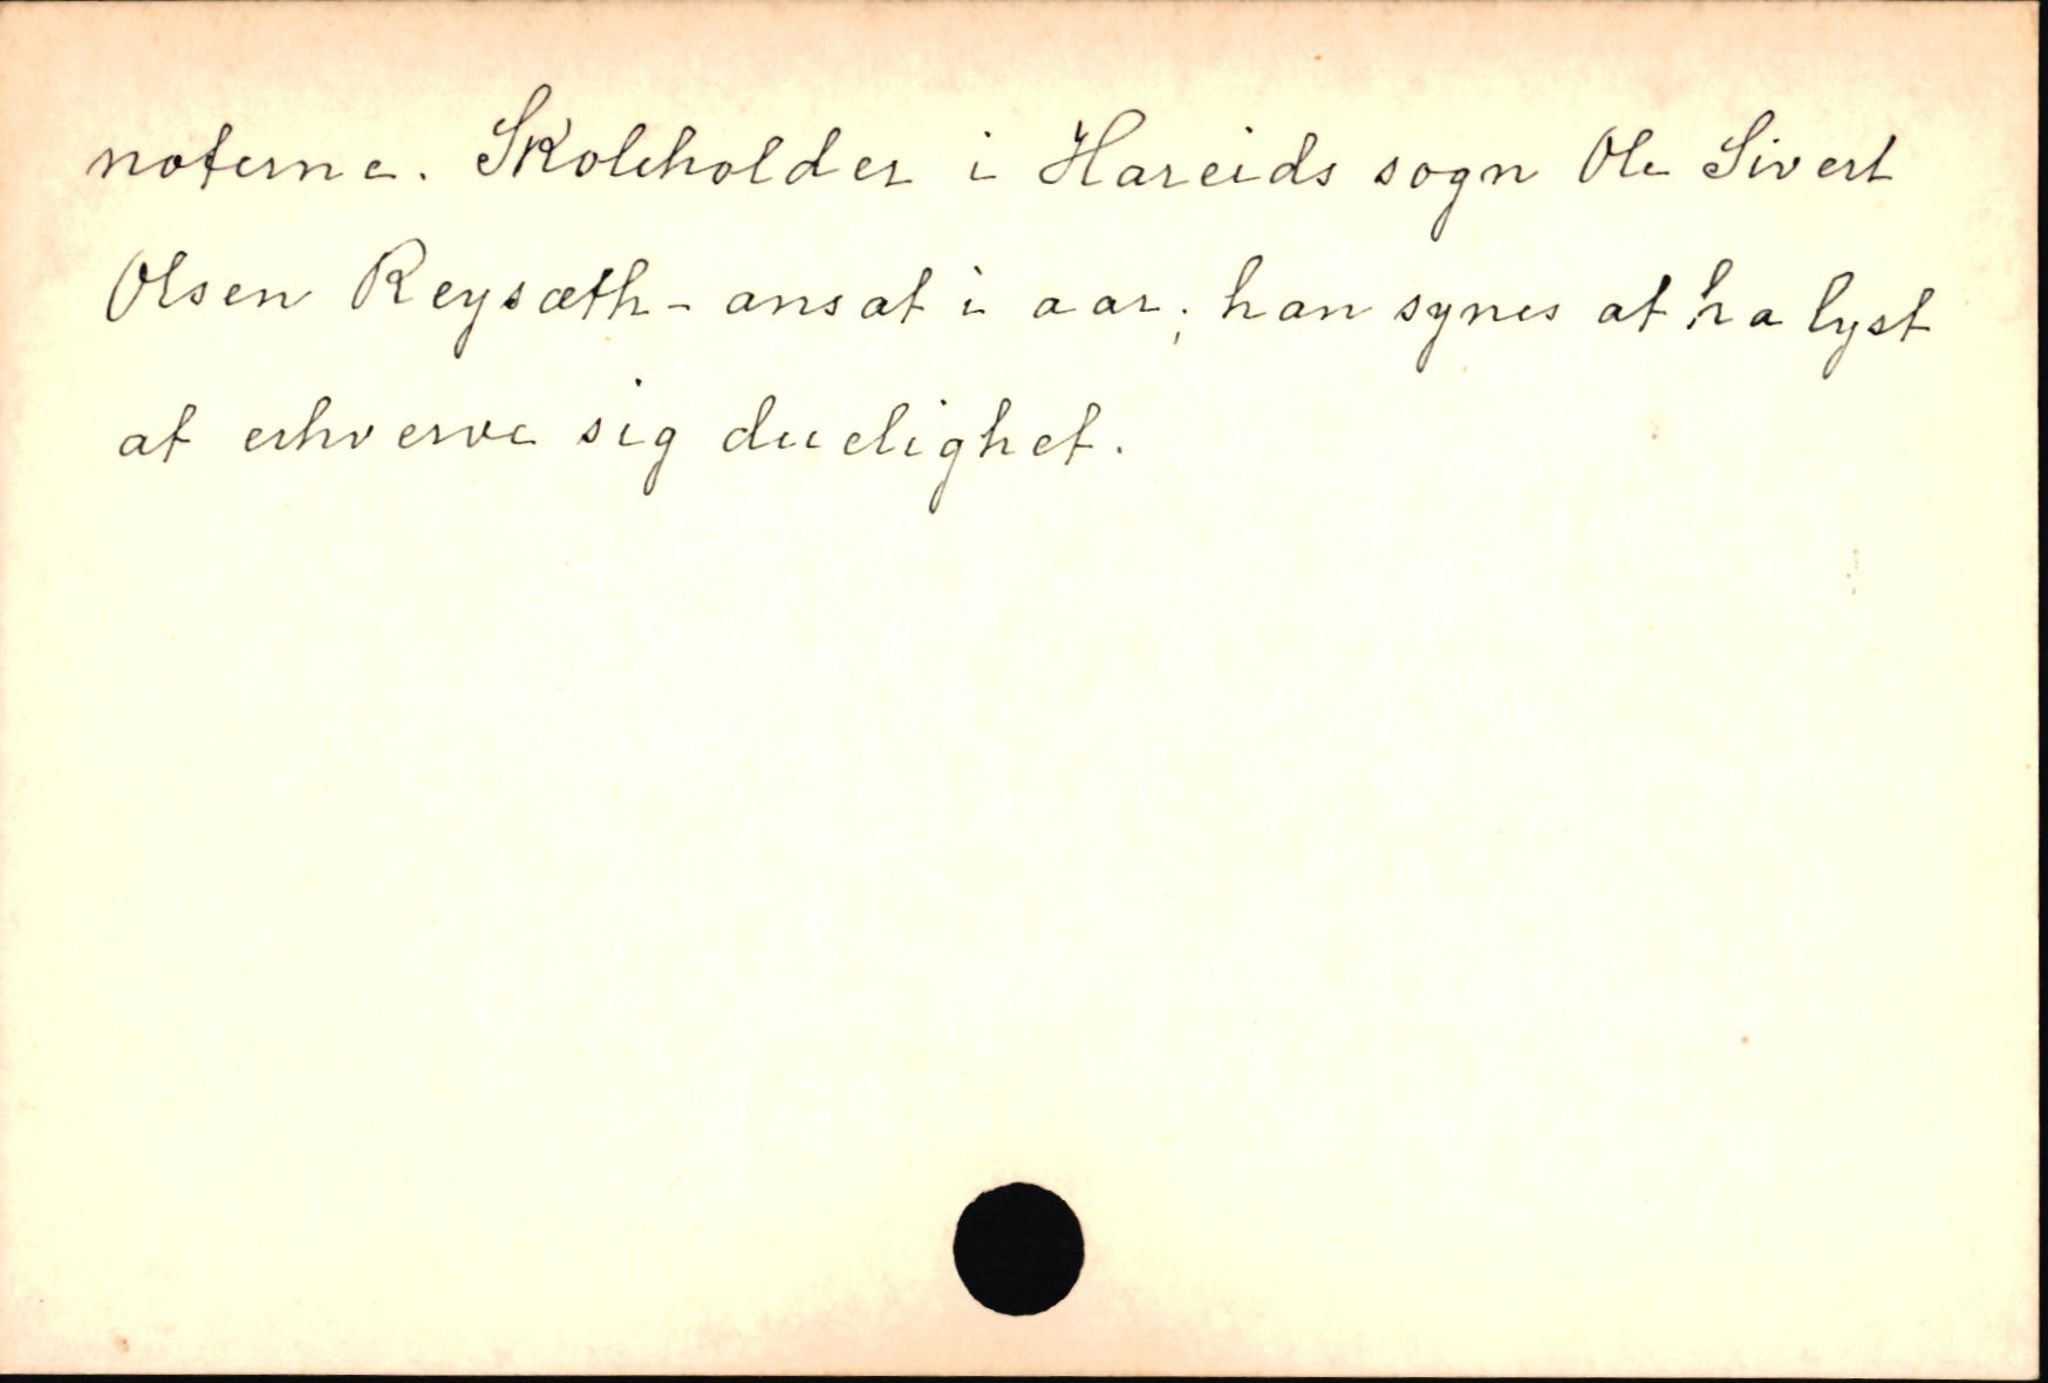 noterne. Skoleholder i Hareids sogn Ole Sivert
Olsen Reysæth - ansat i aar; han synes at ha lyst
at erhverve sig duelighet.